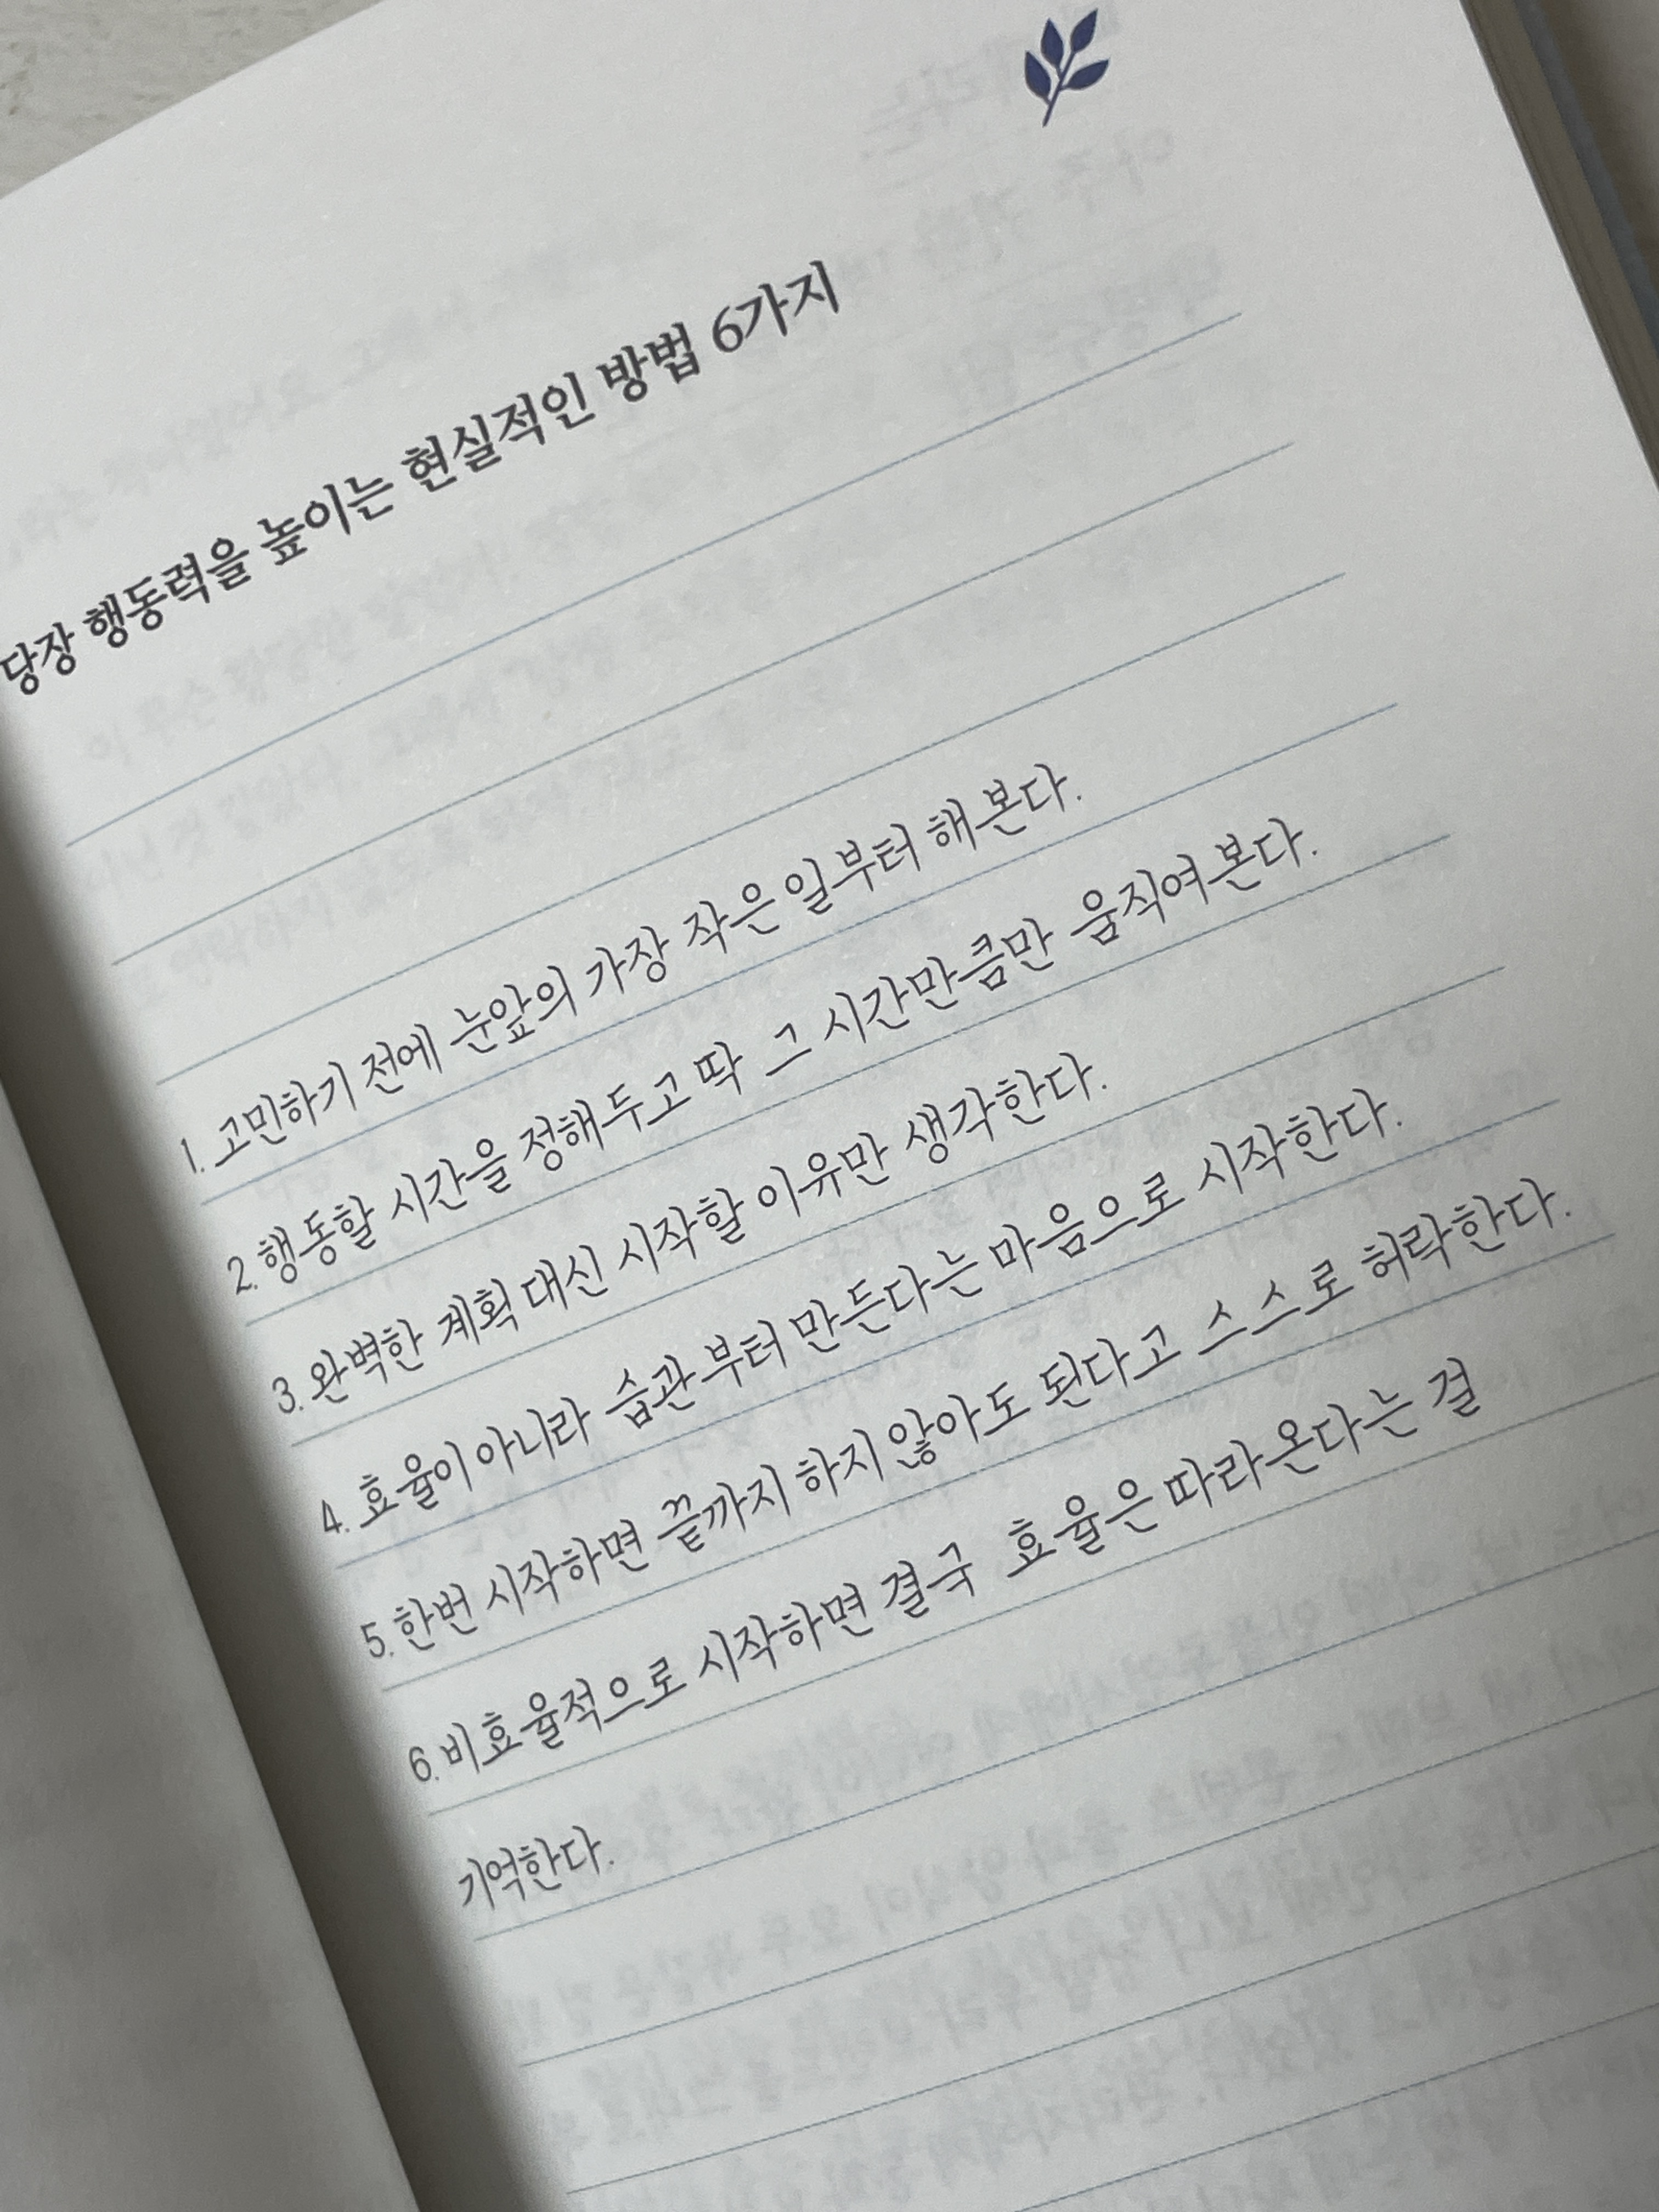 당장 행동력을 높이는 현실적인 방법 6가지
1. 고민하기 전에 눈앞의 가장 작은 일부터 해 본다.
2. 행동할 시간을 정해두고 딱 그 시간만큼만 움직여 본다.
3. 완벽한 계획 대신 시작할 이유만 생각한다.
4. 효율이 아니라 습관부터 만든다는 마음으로 시작한다.
5. 한번 시작하면 끝까지 하지 않아도 된다고 스스로 허락한다.
6. 비효율적으로 시작하면 결국 효율은 따라온다는 걸
기억한다.